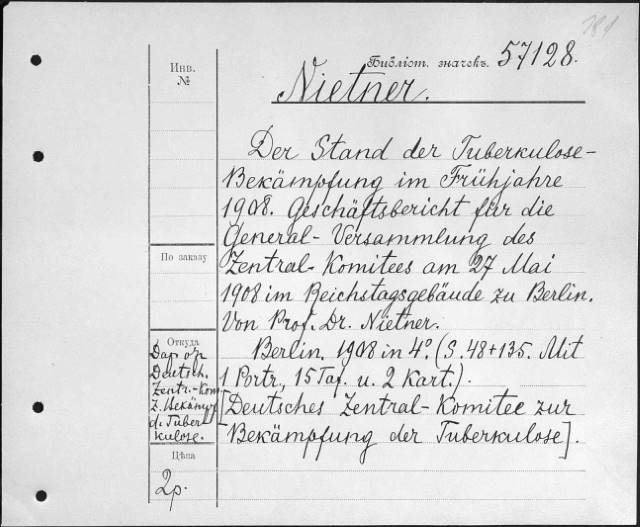 181
Инв.
№
Библіот. значекъ. 57128.
Nietner.
Der Stand der Tuberkulose-
Bekämpfung im Frühjahre
1908. Geschäftsbericht für die
General-Versammlung des
Zentral-Komitees am 27 Mai
1908 im Reichstagsgebäude zu Berlin.
Von Prof. Dr. Nietner.
Berlin, 1908 in 4º. (S. 48+135. Mit
1 Portr., 15 Taf. u. 2 Kart.).
[Deutsches Zentral-Komitee zur
Bekämpfung der Tuberkulose].
По заказу
Откуда
Дар от
Deutsch.
Zentr.-Kom
z. Bekämpf
d. Tuber
kulose.
Цѣна
2р.